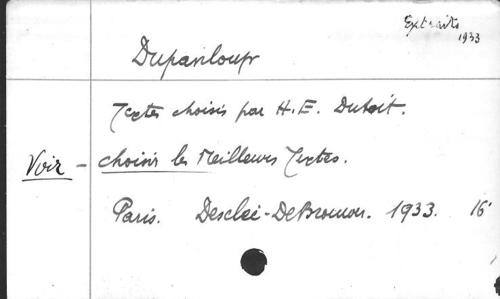 Extraits
1933
Dupanloup
Textes choisis par H.E. Dutoit.
Voir - choisir les Meilleurs Textes.
Paris. Desclée-DeBrouwer. 1933. 16°